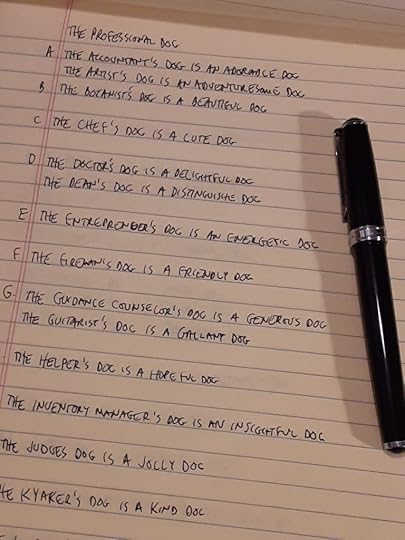 THE PROFESSIONAL DOG
A. THE ACCOUNTANT'S DOG IS AN ADORABLE DOG
THE ARTIST'S DOG IS AN ADVENTURESOME DOG
B THE BOTANIST'S DOG IS A BEAUTIFUL DOG
C THE CHEF'S DOG IS A CUTE DOG
D THE DOCTOR'S DOG IS A DELIGHTFUL DOG
THE DEAN'S DOG IS A DISTINGUISHE DOG
E THE ENTREPRENEER'S DOG IS AN ENERGETIC DOG
F THE FIREMAN'S DOG IS A FRIENDLY DOG
G. THE GUIDANCE COUNSELOR'S DOG IS A GENEROUS DOG
THE GUITARIST'S DOG IS A GALLANT DOG
THE HELPER'S DOG IS A HOPEFUL DOG
THE INVENTORY MANAGER'S DOG IS AN INSIGHTFUL DOG
THE JUDGES DOG IS A JOLLY DOG
HE KYAKER'S DOG IS A KIND DOG